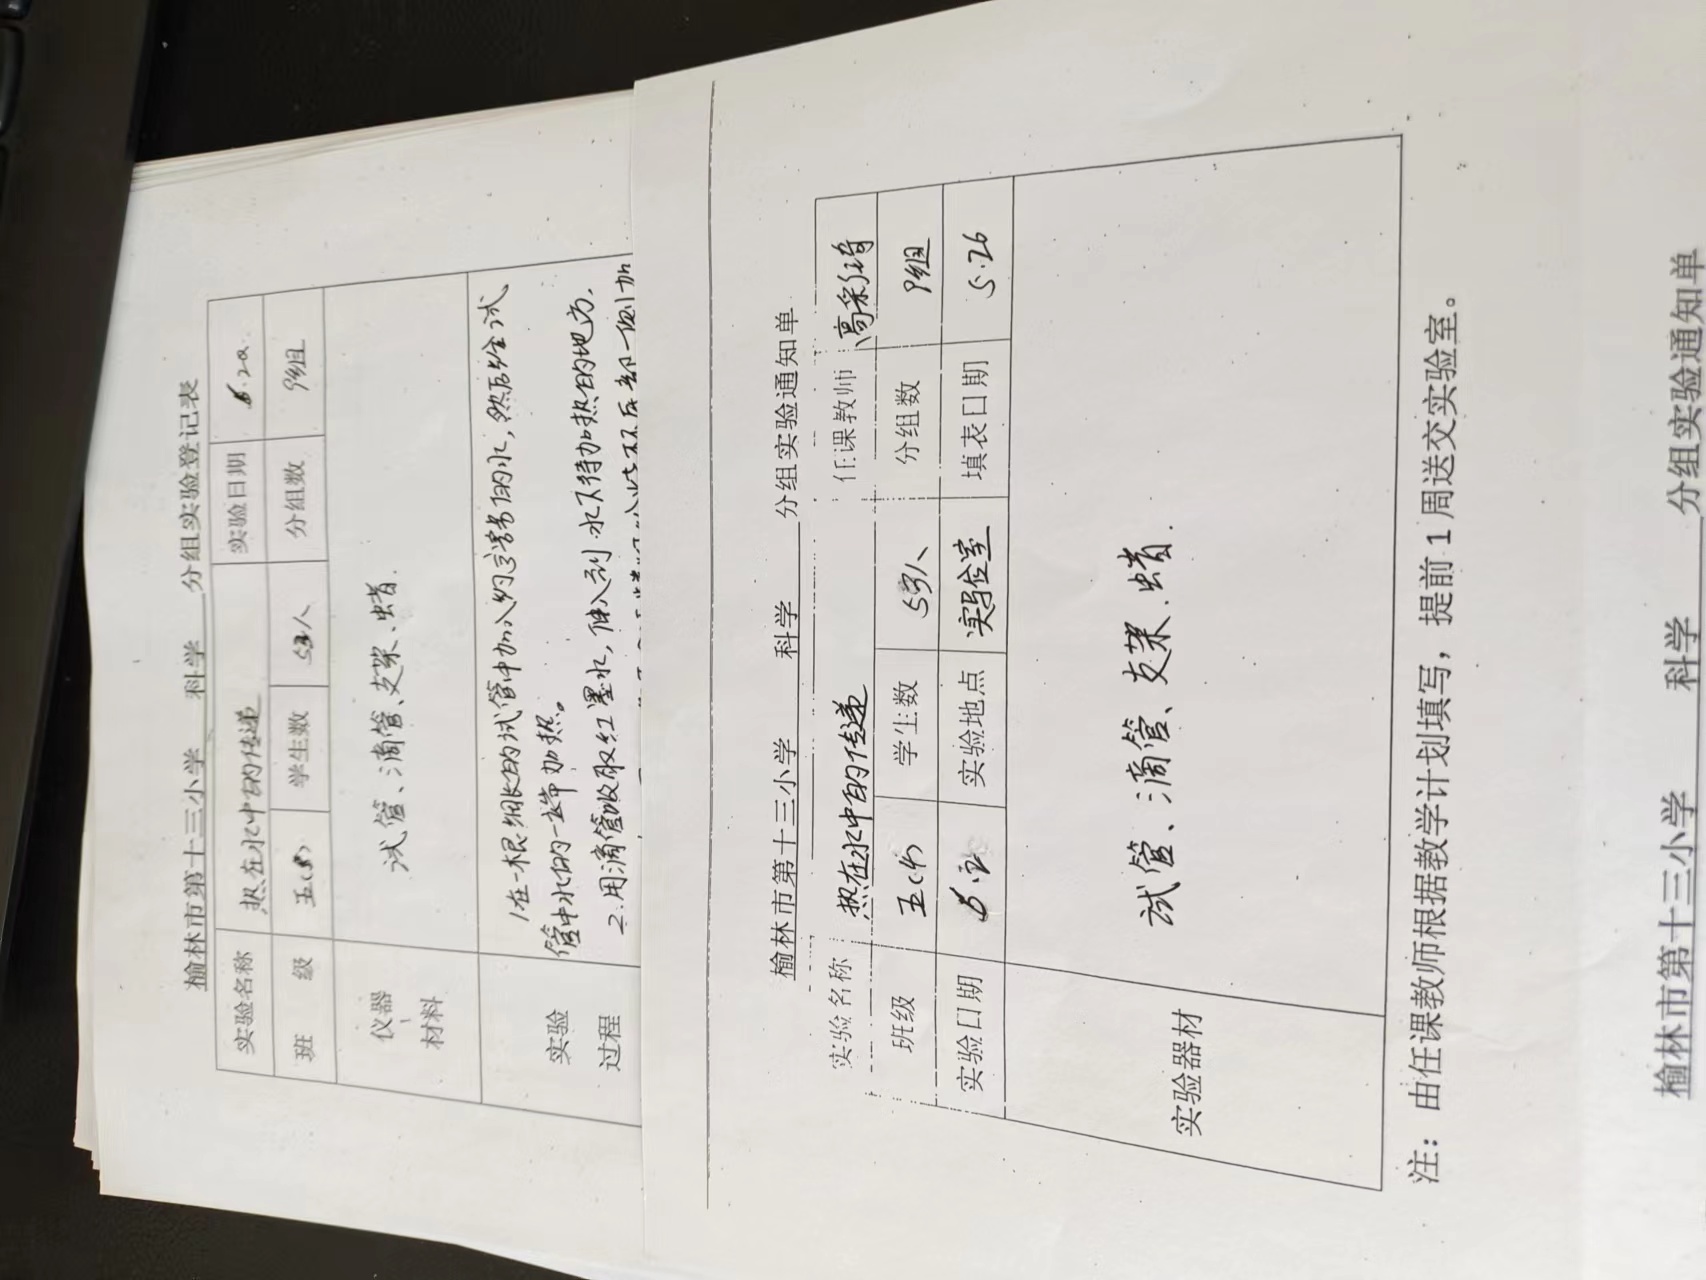 榆林市第十三小学 科学 分组实验登记表
实验名称 热在水中的传递 实验日期
班 级 学生数 53人 分组数 9组
仪器材料 试管、滴管、支架、蜡
实验过程 1在一根细长的试管中加入约的水,然后给试
管中水的一端加热。
2.用滴管吸取红墨水,伸入到水不待加热的地方.
榆林市第十三小学 科学 分组实验通知单
实验名称 热在水中的传递 任课教师
班级 学生数 53人 分组数 9组
实验日期 实验地点 实验室 填表日期 5.26
实验器材 试管、滴管、支架、蜡.
注：由任课教师根据教学计划填写，提前1周送交实验室。
榆林市第十三小学 科学 分组实验通知单